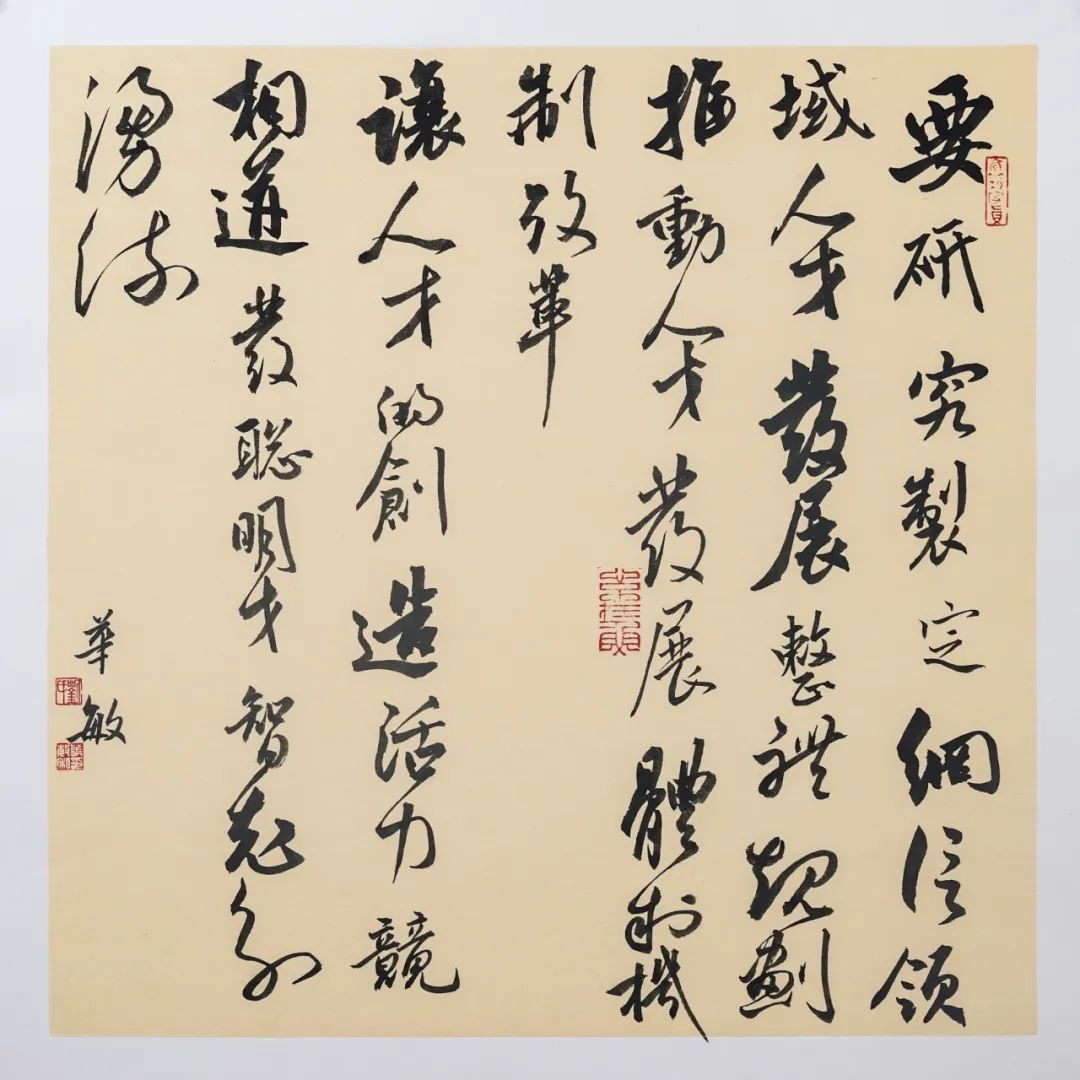 要研究製定網信領
域人才發展整體規劃
推動人才發展體制機
制改革
讓人才的創造活力競
相迸發聰明才智充分
湧流
華敏